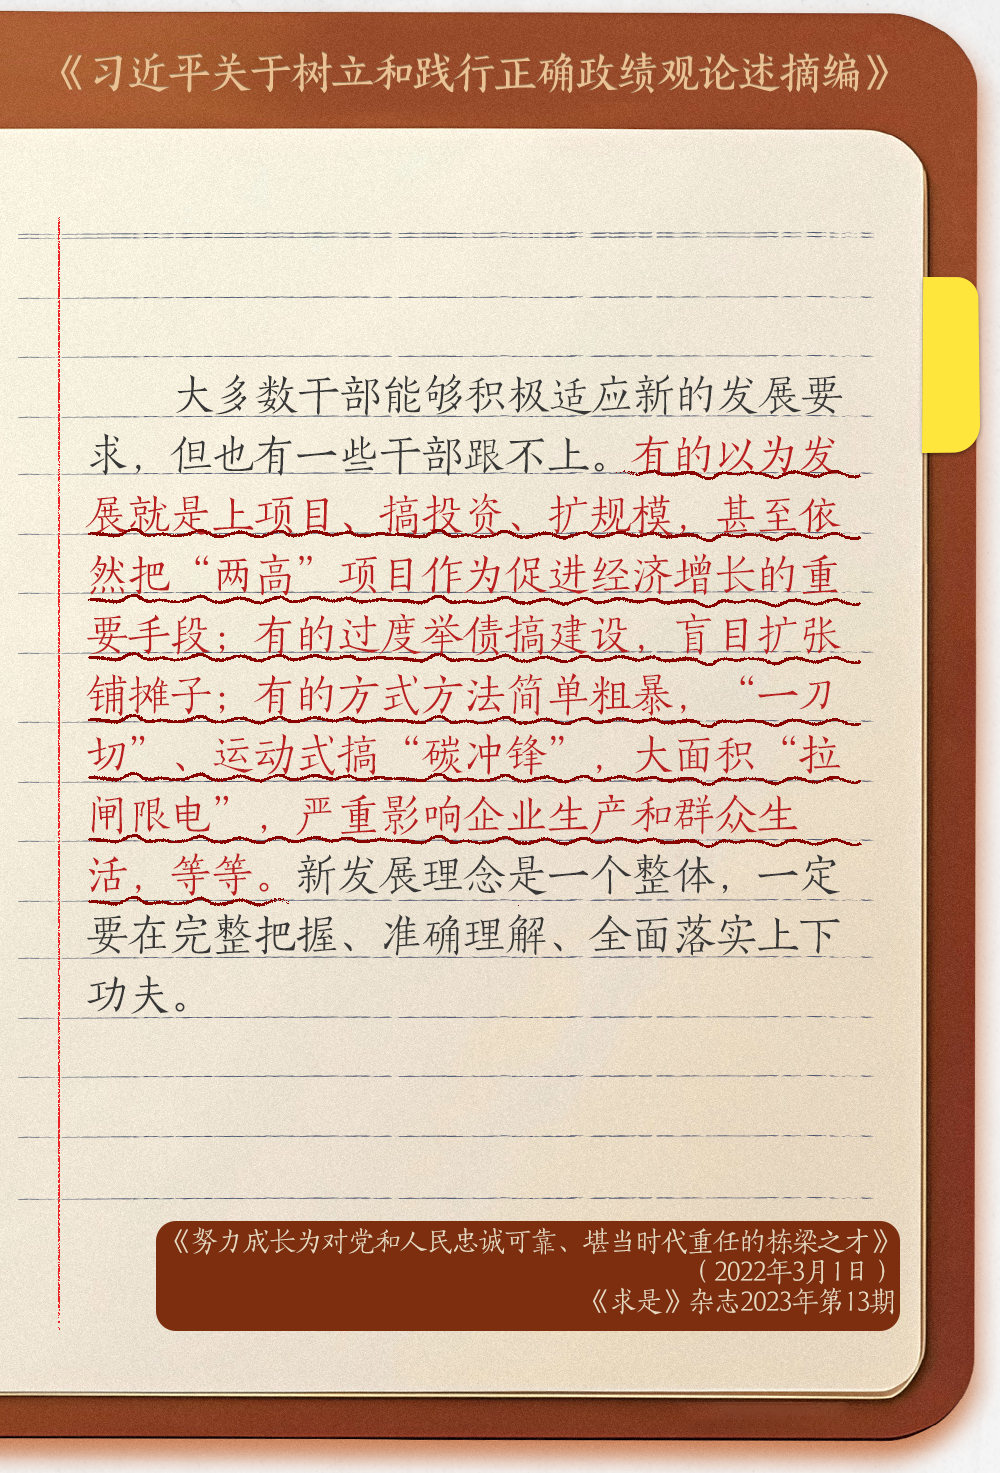 《习近平关于树立和践行正确政绩观论述摘编》
大多数干部能够积极适应新的发展要
求，但也有一些干部跟不上。有的以为发
展就是上项目、搞投资、扩规模，甚至依
然把“两高”项目作为促进经济增长的重
要手段；有的过度举债搞建设，盲目扩张
铺摊子；有的方式方法简单粗暴，“一刀
切”、运动式搞“碳冲锋”，大面积“拉
闸限电”，严重影响企业生产和群众生
活，等等。新发展理念是一个整体，一定
要在完整把握、准确理解、全面落实上下
功夫。
《努力成长为对党和人民忠诚可靠、堪当时代重任的栋梁之才》
（2022年3月1日）
《求是》杂志2023年第13期